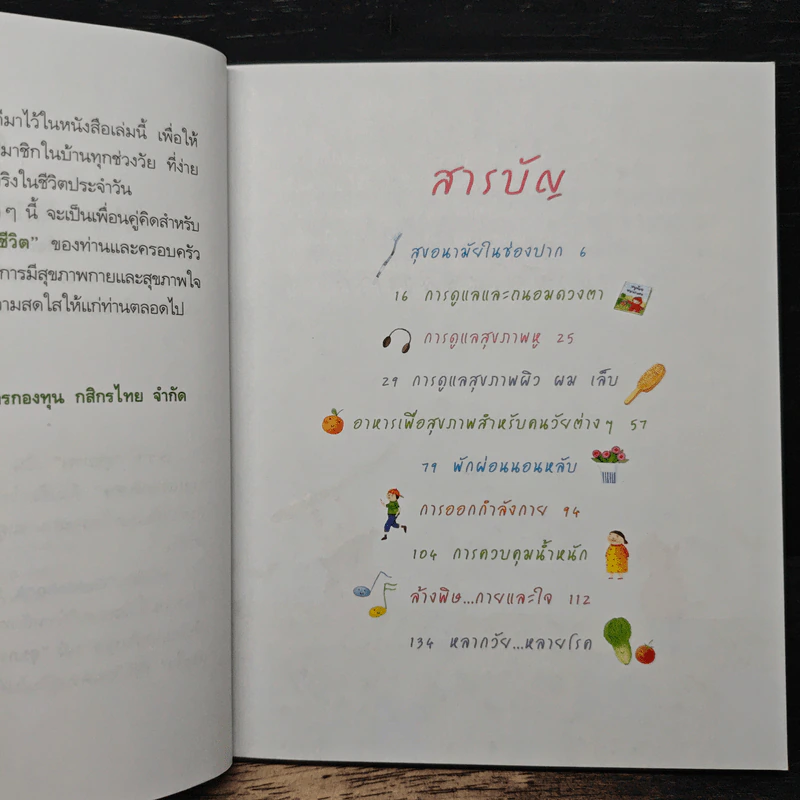 มาไว้ในหนังสือเล่มนี้ เพื่อให้
มาชิกในบ้านทุกช่วงวัย ที่ง่าย
ริงในชีวิตประจำวัน
ๆ นี้ จะเป็นเพื่อนคู่คิดสำหรับ
ชีวิต” ของท่านและครอบครัว
การมีสุขภาพกายและสุขภาพใจ
วามสดใสให้แก่ท่านตลอดไป
รกองทุน กสิกรไทย จำกัด
สารบัญ
สุขอนามัยในช่องปาก 6
16 การดูแลและถนอมดวงตา
การดูแลสุขภาพหู 25
29 การดูแลสุขภาพผิว ผม เล็บ
อาหารเพื่อสุขภาพสำหรับคนวัยต่างๆ 57
79 พักผ่อนนอนหลับ
การออกกำลังกาย 94
104 การควบคุมน้ำหนัก
ล้างพิษ...กายและใจ 112
134 หลากวัย...หลายโรค